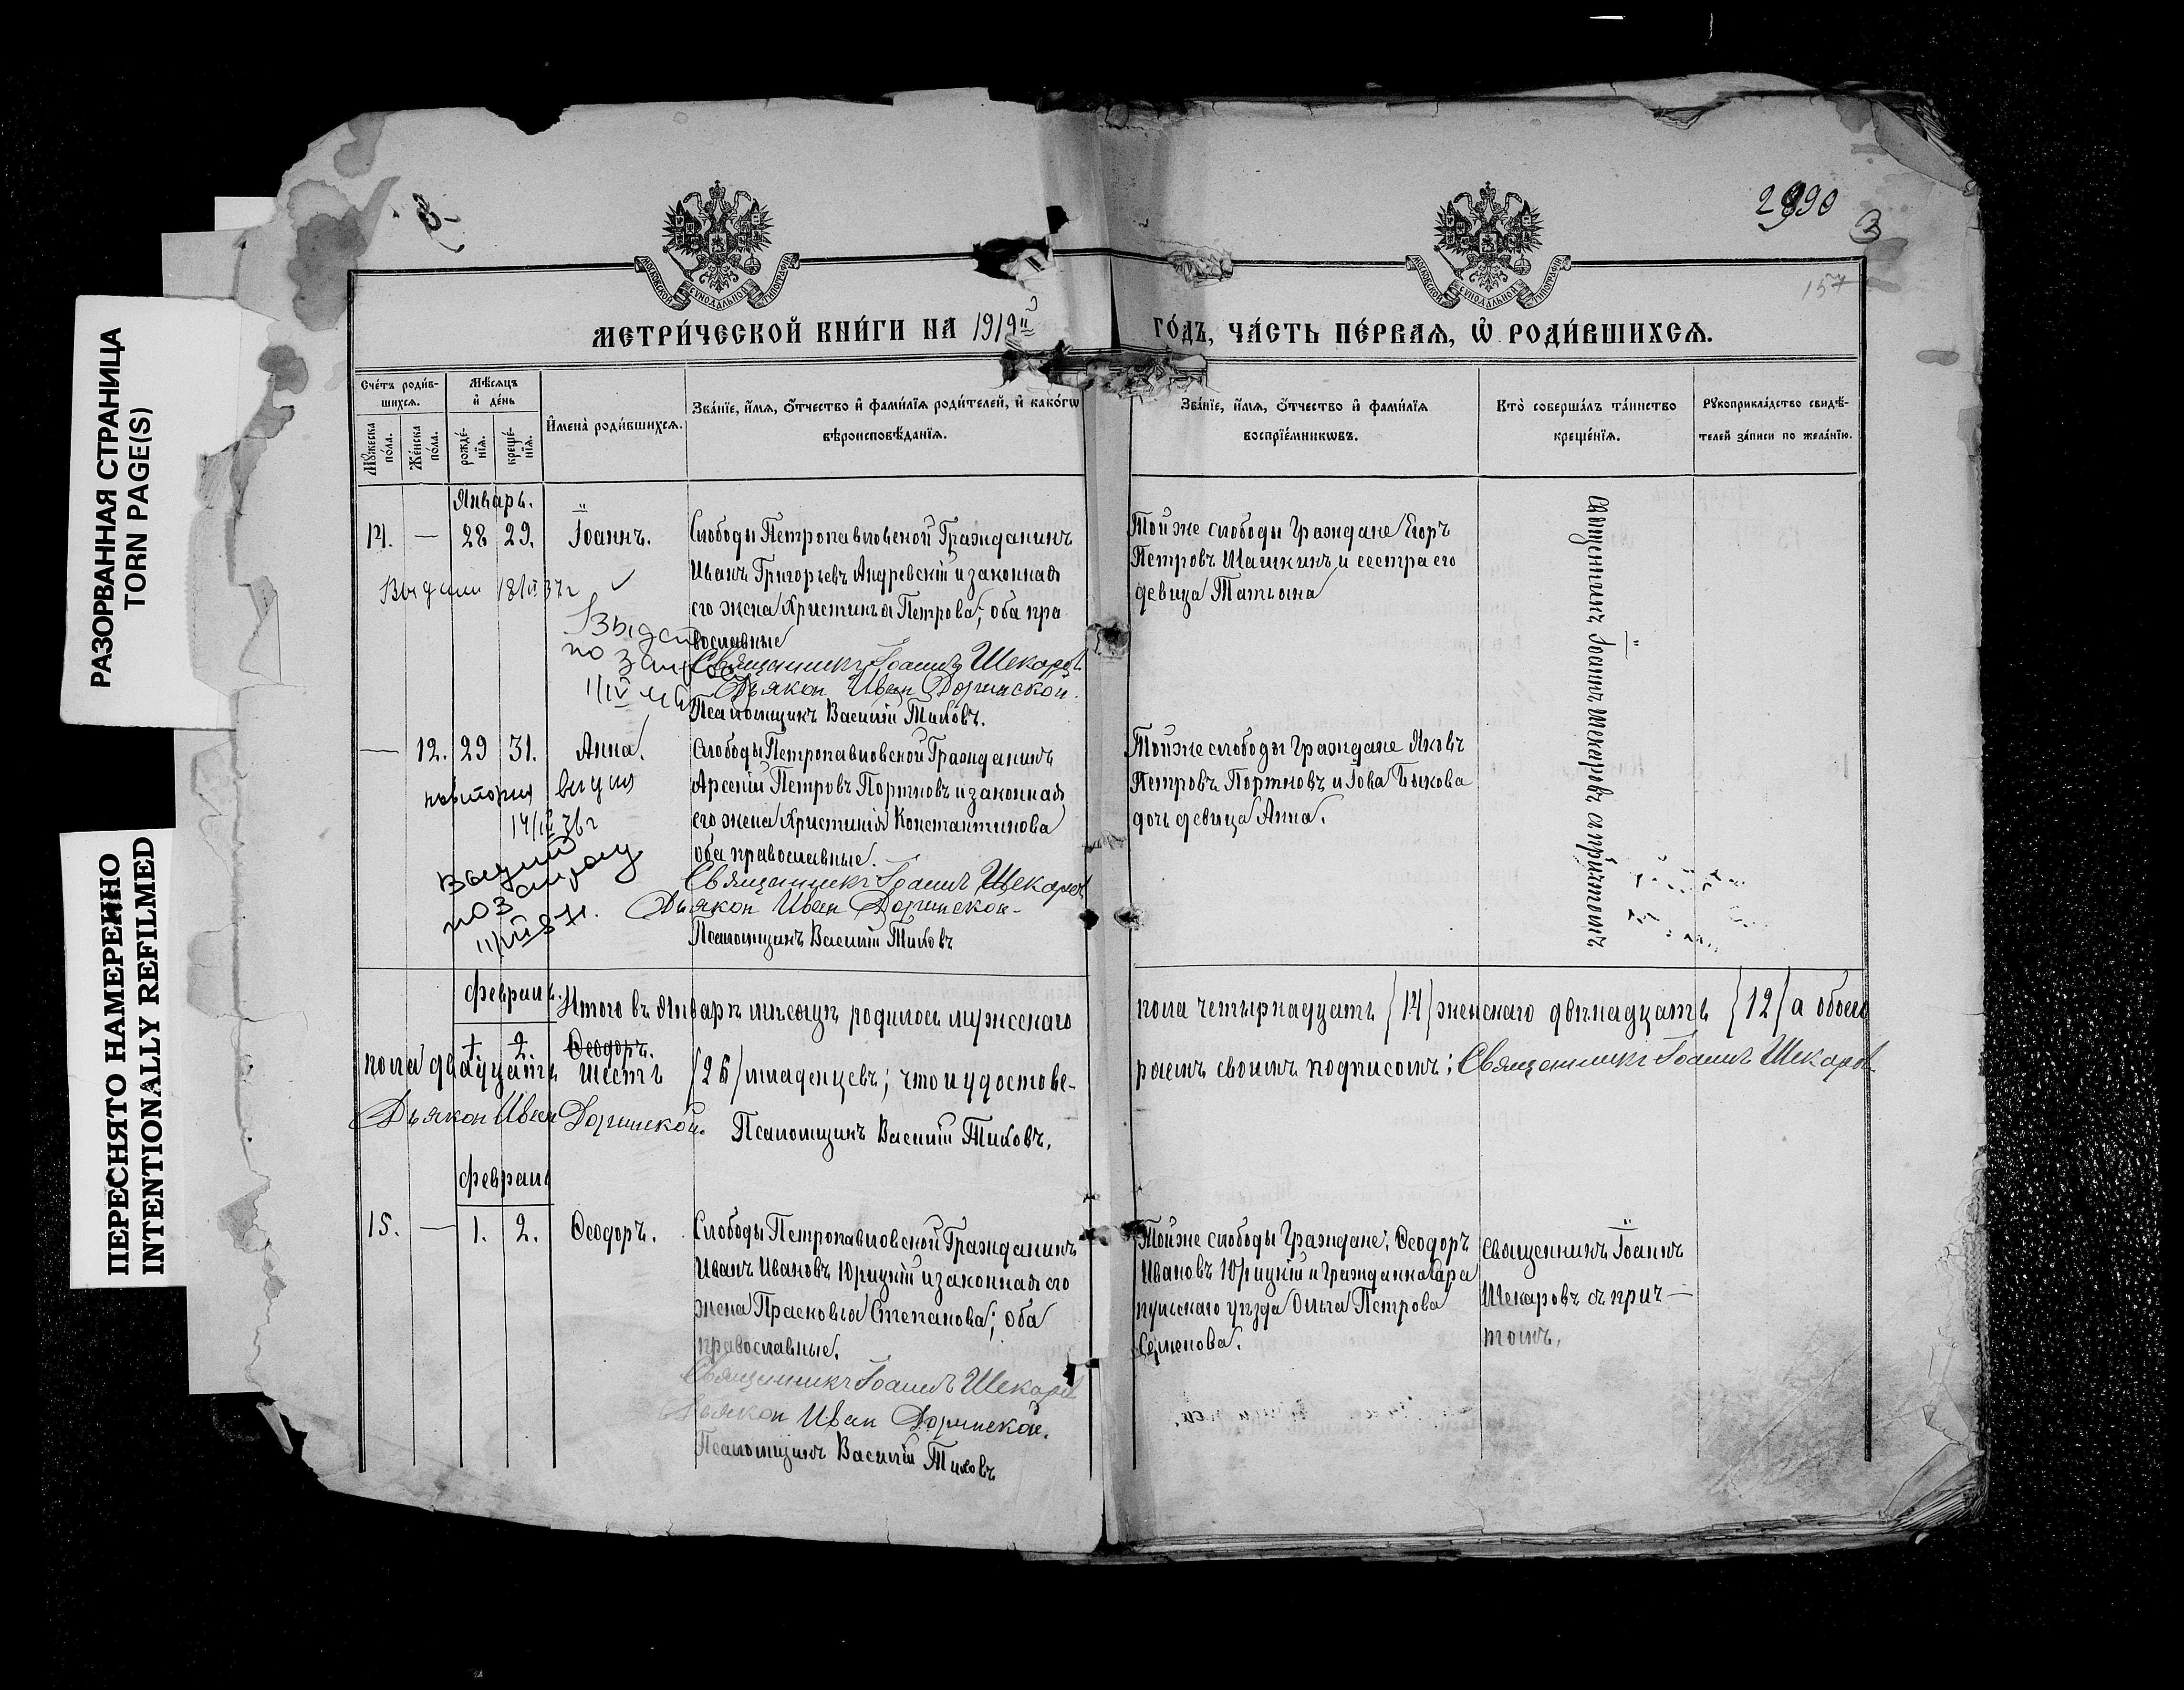 РАЗОРВАННАЯ СТРАНИЦА
TORN PAGE(S)
ПЕРЕСНЯТО НАМЕРЕННО
INTENTIONALLY REFILMED
2990
3
157
МОСКОВСКОЙ СУНОДАЛЬНОЙ ТИПОГРАФІИ
МОСКОВСКОЙ СУНОДАЛЬНОЙ ТИПОГРАФІИ
МЕТРИ́ЧЕСКОЙ КНИ́ГИ НА 1919й ГО́ДЪ, ЧА́СТЬ ПЕ́РВАЯ, Ѡ РОДИ́ВШИХСЯ.
Сче́тъ роди́в-
шихся.
Мѣ́сяцъ
и҆ де́нь
Мꙋ́жеска
по́ла.
Же́нска
по́ла.
рожде́-
нїя.
креще́-
нїя.
И҆мена̀ роди́вшихся.
Зва́нїе, и҆́мя, ѻ҆́тчество и҆ фами́лїя роди́телей, и҆ како́гѡ
вѣроисповѣ́данїя.
Зва́нїе, и҆́мя, ѻ҆́тчество и҆ фами́лїя
воспрїе́мникѡвъ.
Кто̀ соверша́лъ та́инство
креще́нїя.
Рꙋкоприкла́дство свидѣ́-
телей за́писи по жела́нїю.
Январь.
14. — 28 29. Іоаннъ.
Слободы Петропавловской Гражданинъ
Иванъ Григорьевъ Андревскій и законная
его жена Христинья Петрова; оба пра
вославные
Священникъ Іоаннъ Шекаровъ
Дьякон Иван Доринской.
Псаломщикъ Василій Тиховъ.
Тойже слободы Граждане Егоръ
Петровъ Шашкинъ и сестра его
девица Татьяна
Священникъ Іоаннъ Шекаровъ съ причтомъ
— 12. 29 31. Анна.
Слободы Петропавловской Гражданинъ
Арсеній Петровъ Портновъ и законная
его жена Христинія Константинова
оба православные.
Священникъ Іоаннъ Шекаровъ
Дьякон Иван Доринской
Псаломщикъ Василій Тиховъ
Тойже слободы Граждане Яковъ
Петровъ Портновъ и Іова Быкова
дочь девица Анна.
февраль.
Итого въ Январѣ мѣсяцѣ родилось мужскаго пола четырнадцать (14) женскаго двенадцать (12) а обоего
1 2. Ѳеодоръ.
пола двадцать шесть (26) младенцевъ; что и удостове-
ряемъ своимъ подписомъ; Священникъ Іоаннъ Шекаровъ
Дьякон Иван Доринской. Псаломщикъ Василій Тиховъ.
февраль
15. — 1. 2. Ѳеодоръ.
Слободы Петропавловской Гражданинъ
Иванъ Ивановъ Юрицкій и законная его
жена Прасковья Степанова; оба
православные.
Священникъ Іоаннъ Шекаровъ
Дьякон Иван Доринской.
Псаломщикъ Василій Тиховъ
Тойже слободы Граждане: Ѳеодоръ
Ивановъ Юрицкій и Гражданка Сара
пульскаго уезда Ольга Петрова
Семенова.
Священникъ Іоаннъ
Шекаровъ съ прич—
томъ.